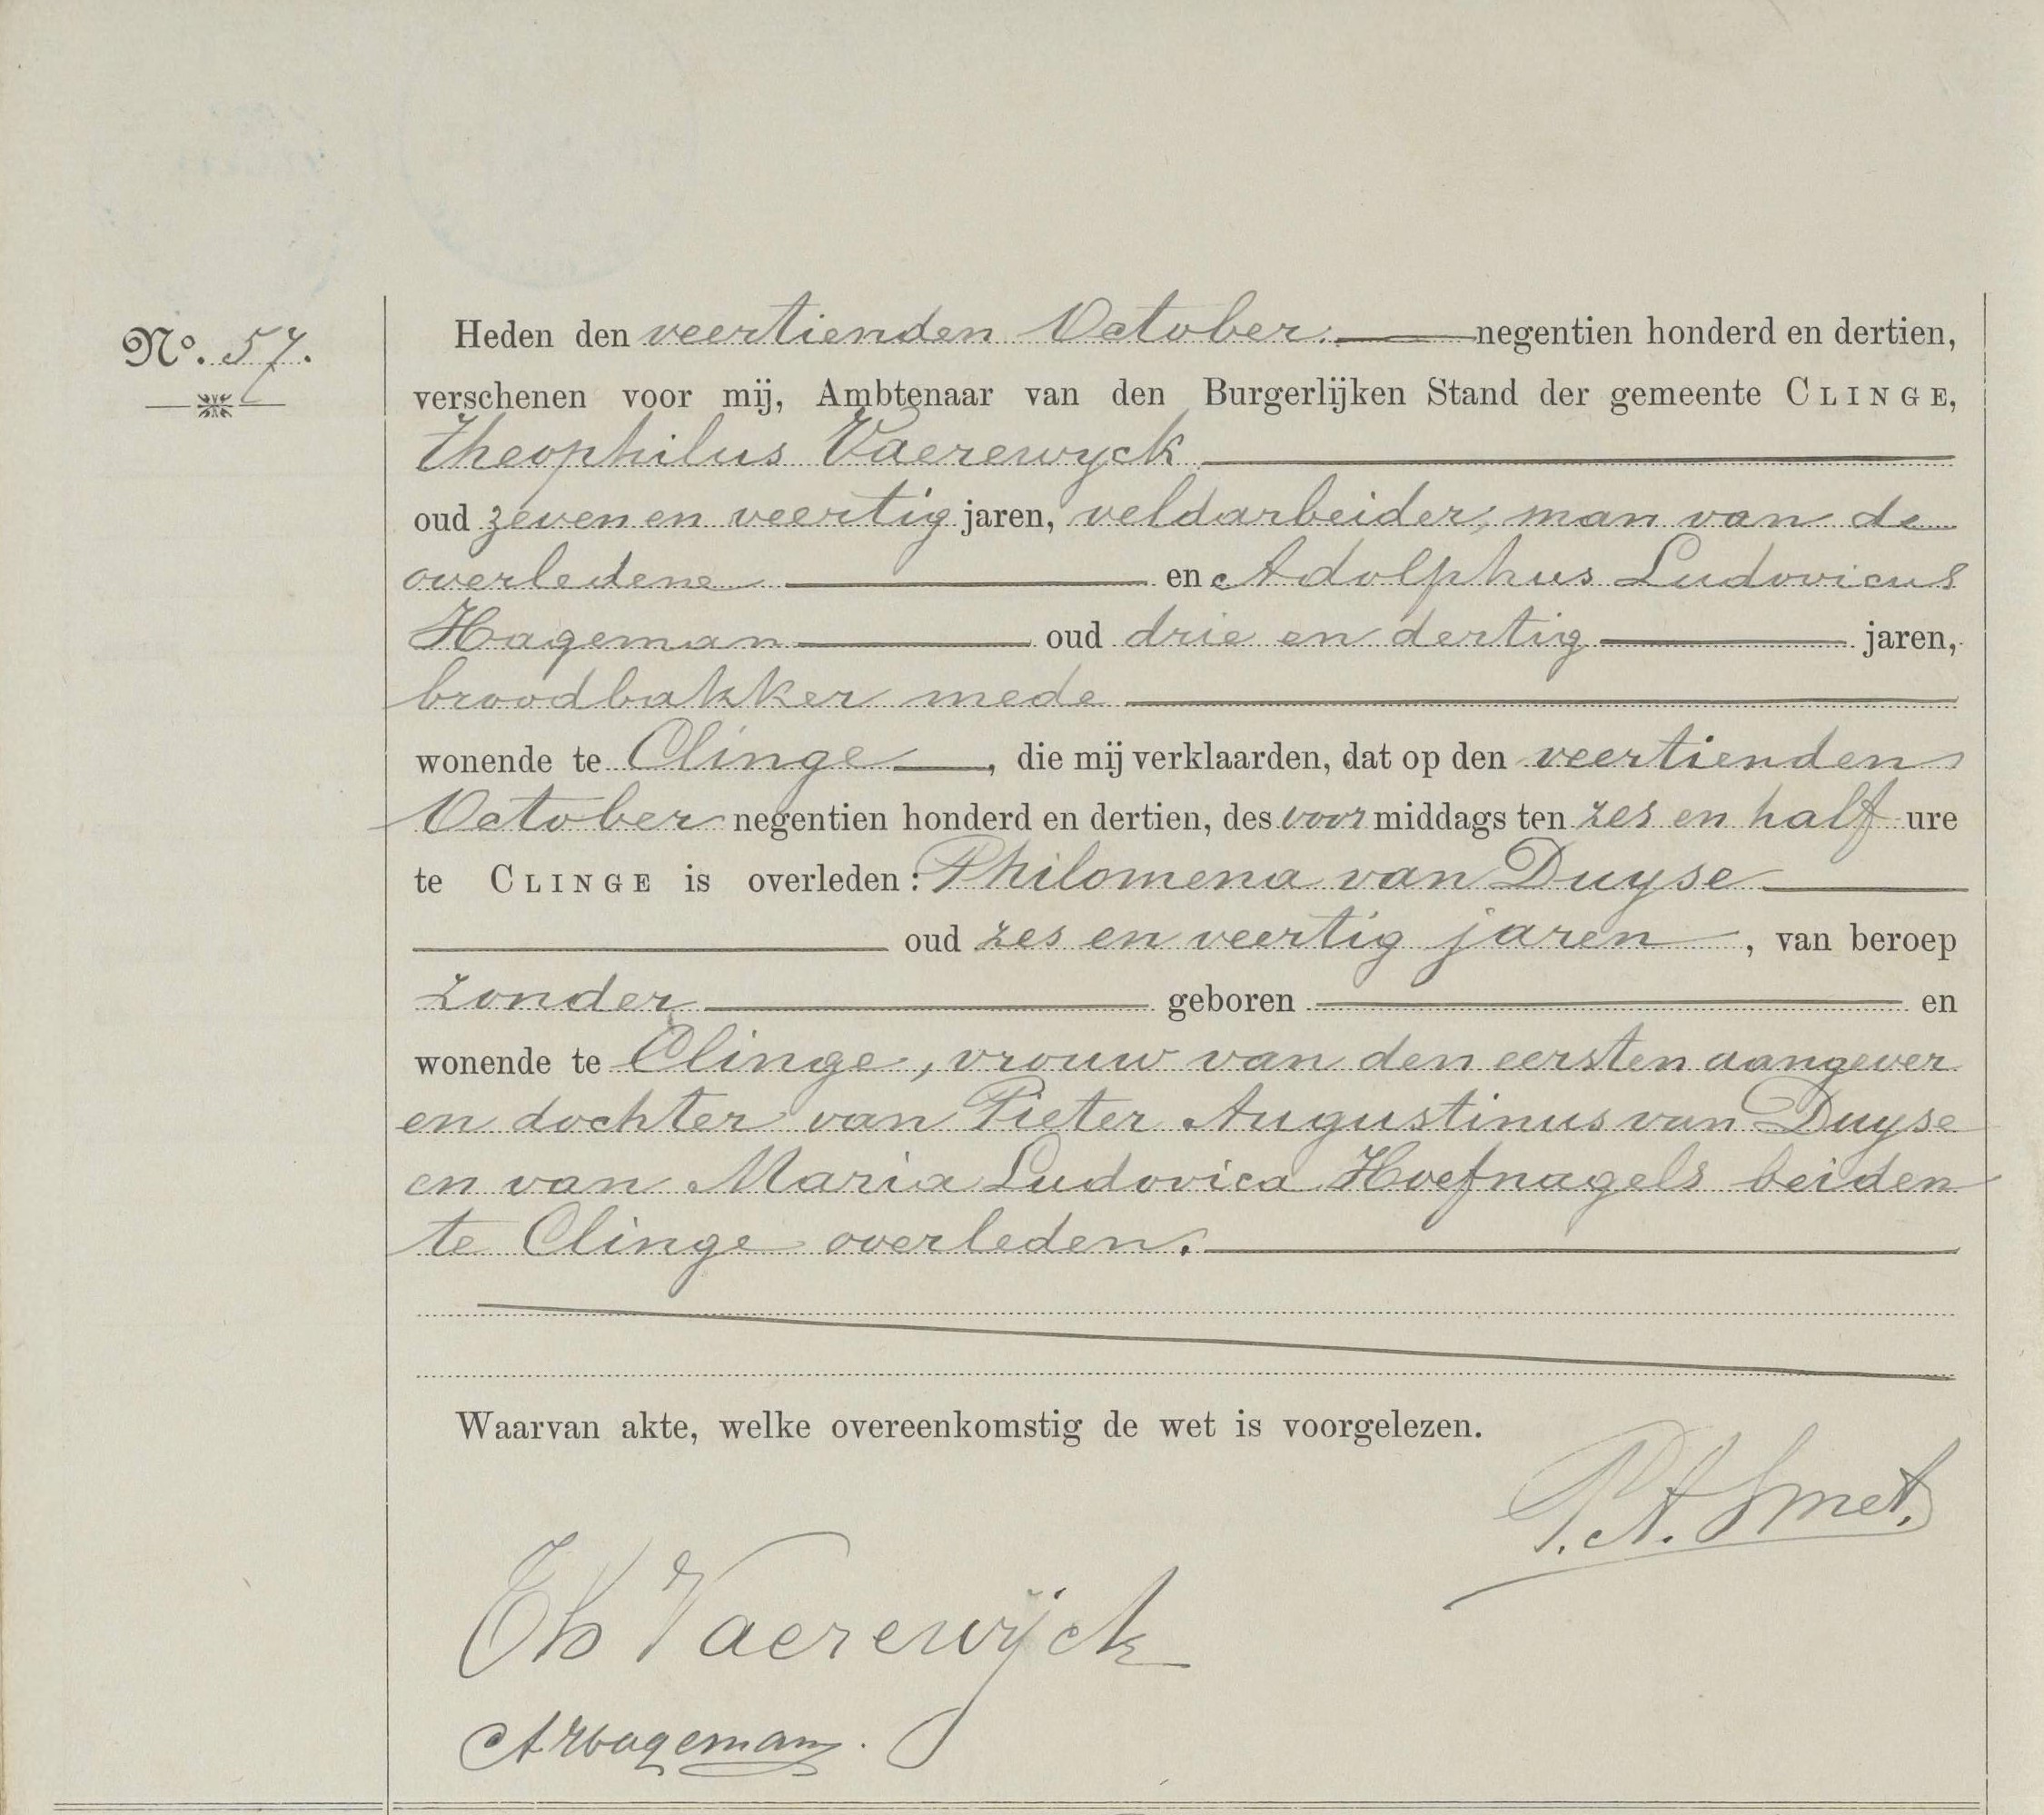 Nº. 57.
Heden den veertienden October. negentien honderd en dertien,
verschenen voor mij, Ambtenaar van den Burgerlijken Stand der gemeente CLINGE,
Theophilus Vaerewyck
oud zeven en veertig jaren, veldarbeider, man van de
overledene en Adolphus Ludovicus
Hageman oud drie en dertig jaren,
broodbakker mede
wonende te Clinge, die mij verklaarden, dat op den veertienden
October negentien honderd en dertien, des voormiddags ten zes en half ure
te CLINGE is overleden: Philomena van Duyse
oud zes en veertig jaren, van beroep
zonder geboren en
wonende te Clinge, vrouw van den eersten aangever
en dochter van Pieter Augustinus van Duyse
en van Maria Ludovica Hoefnagels beiden
te Clinge overleden.
Waarvan akte, welke overeenkomstig de wet is voorgelezen.
P. A. Smet.
Th Vaerewijck
A Hageman.